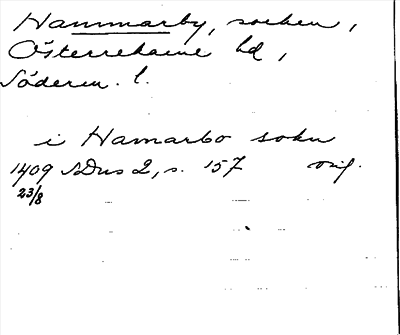 Hammarby, socken,
Österrekarne hd,
Söderm. l.
i Hamarbo sokn
1409 SDns 2, s. 157 orig.
23/8